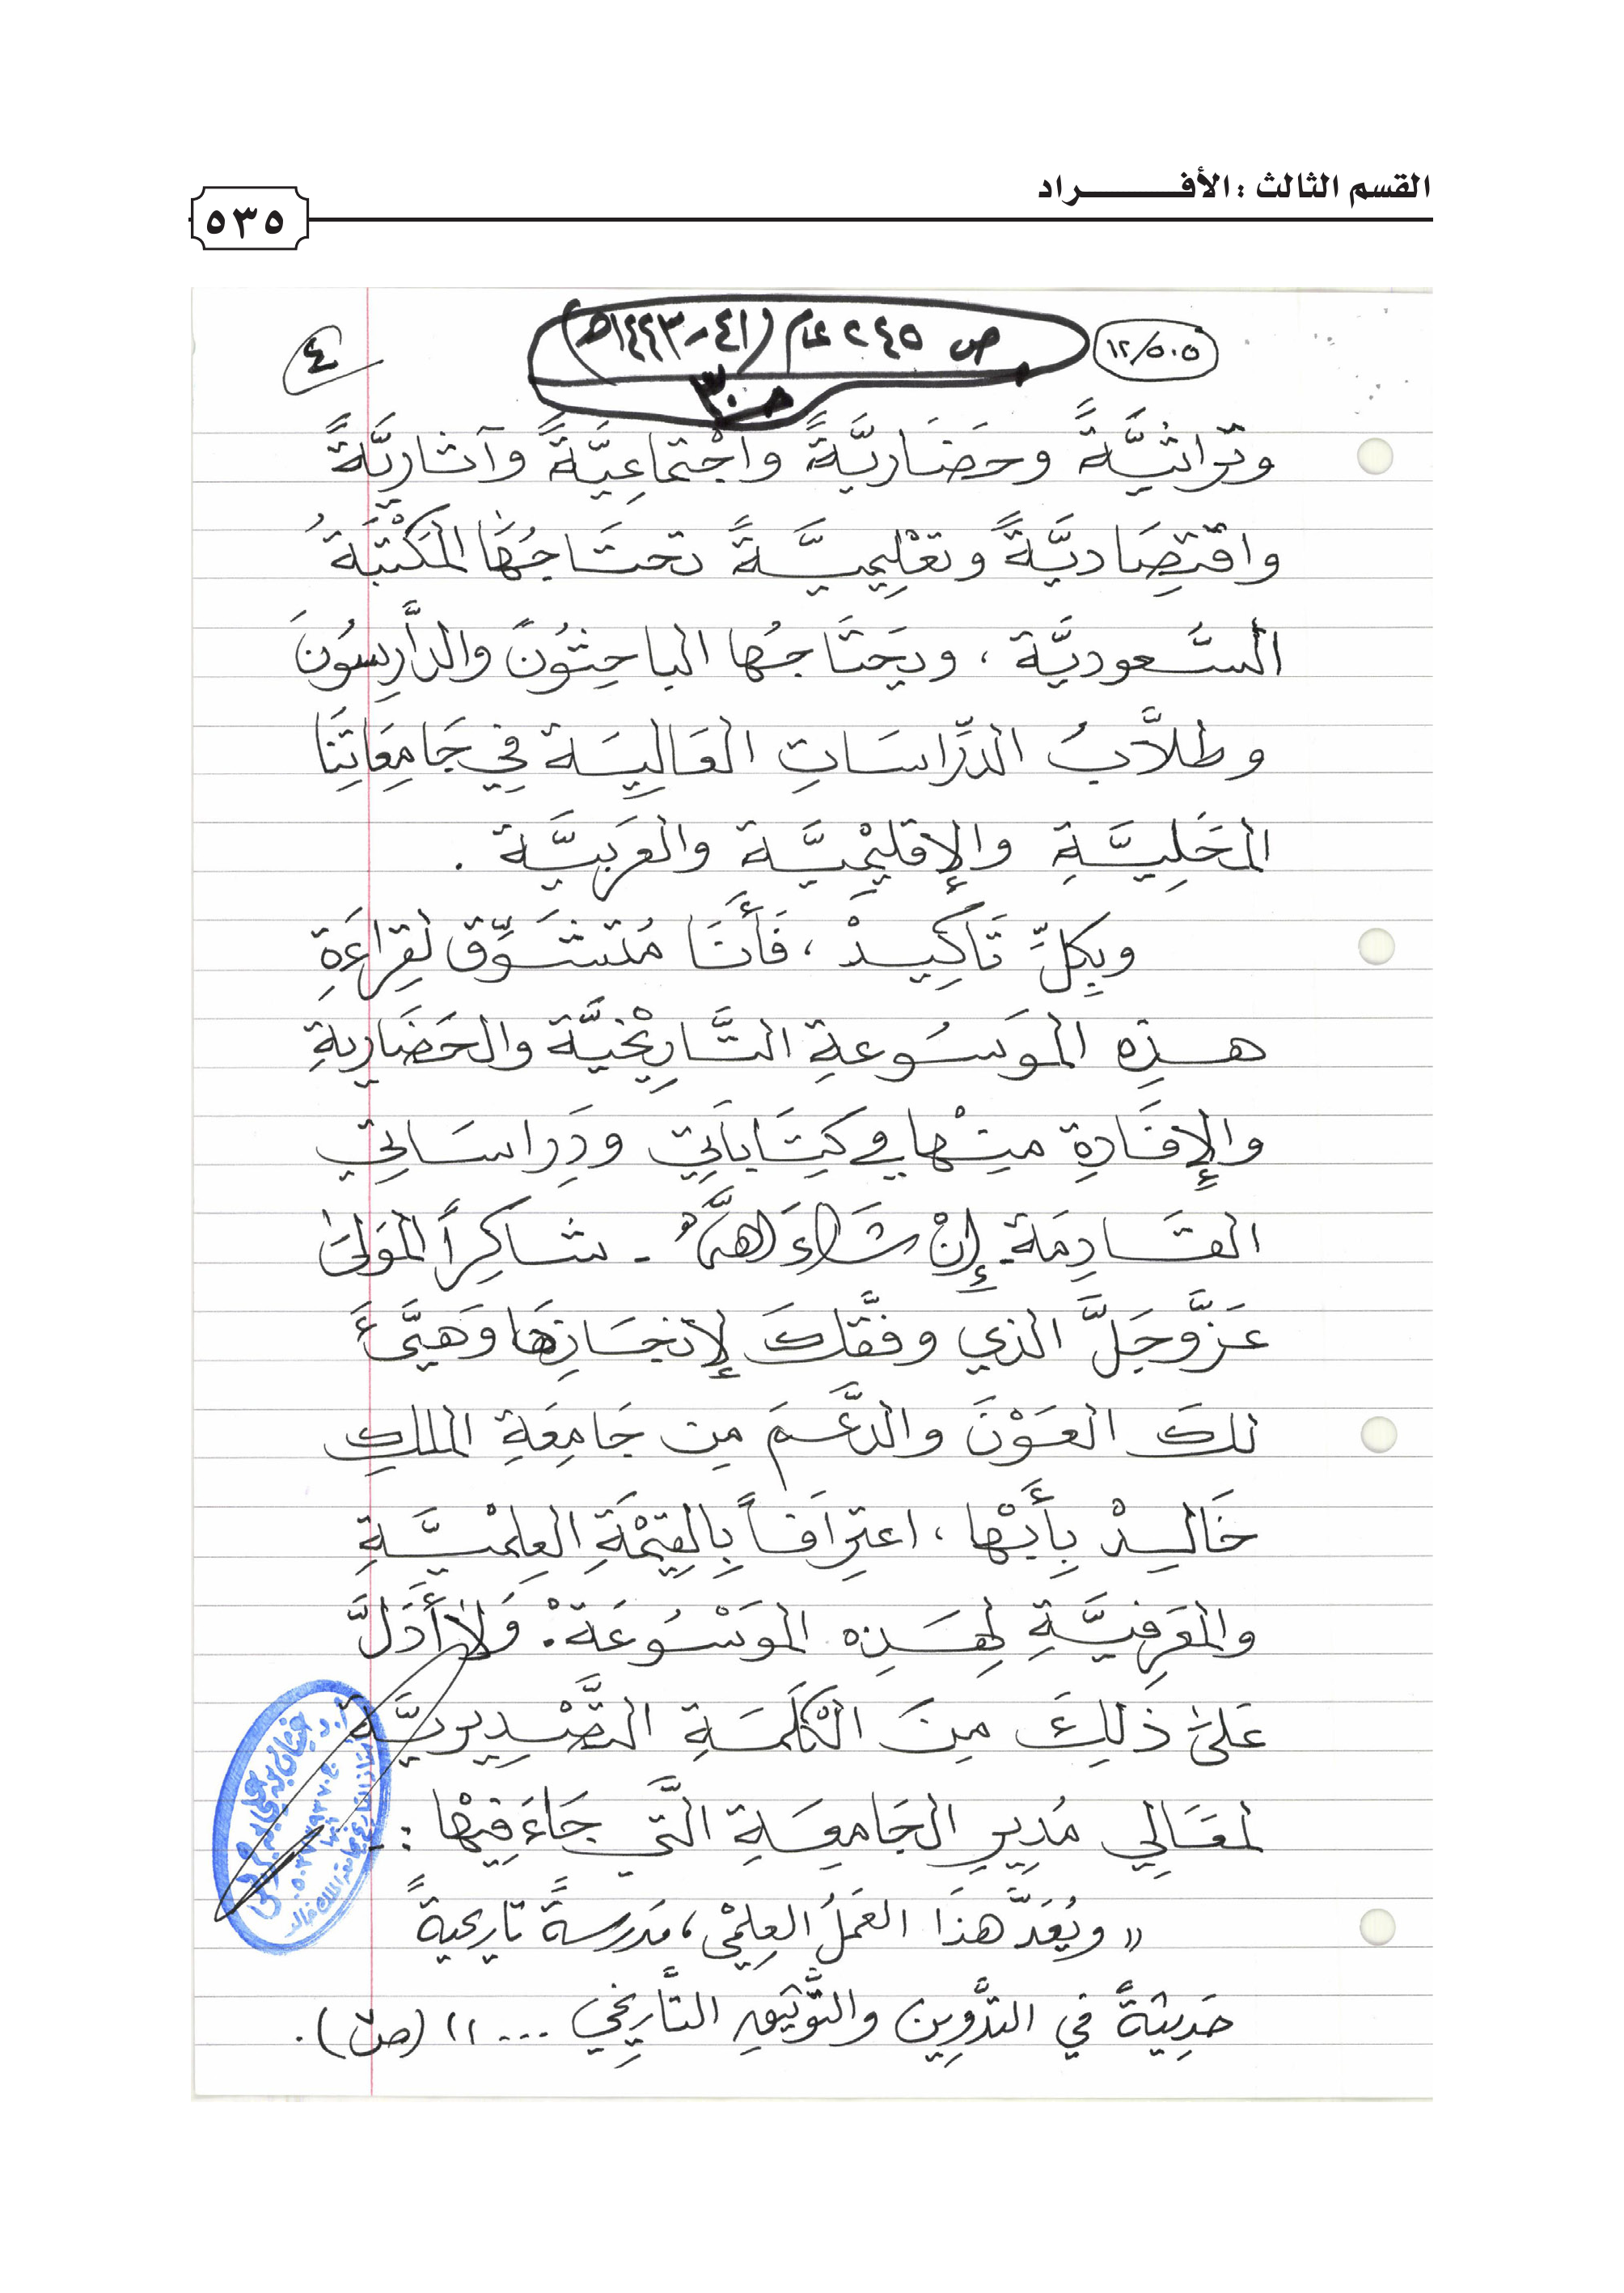 القسم الثالث : الأفـــــــراد
٥٣٥
١٢/٥٠٥
ص ٢٤٥ عام (٤١-١٤٤٣هـ)
٤
حـ٣٠
وتراثيَّةً وحَضَاريَّةً واجْتماعِيَّةً وآثاريَّةً
واقتِصَاديَّةً وتعْلِيميَّةً تحتَاجُهَا المكْتَبَةُ
السَّعوديَّة ، ويَحتَاجُها الباحِثُونَ والدَّارِسُونَ
وطلَّابُ الدِّرَاسَاتِ العَالِيَة فِي جَامِعَاتِنَا
المحَلِيَّةِ والإِقليْميَّة والعَرَبيَّة .
وبِكلِّ تَاكِيدْ ، فَأَنَا مُتشَوِّق لقِراءَةِ
هذِه الموَسُوعةِ التَّاريْخيَّة والحَضَاريةِ
والإِفَادةِ مِنْها في كِتَاباتي ودِرَاسَاتِي
القَادِمَة - إِنْ شَاءَ اللهُ - شاكِراً المَولىٰ
عَزَّ وَجَلَّ الذي وفَّقكَ لإِنجَازِهَا وَهَيَّءَ
لكَ العَوْنَ والدَّعمَ مِن جَامِعَةِ الملكِ
خَالِدْ بِأَبْها ، اعتِرَافاً بِالقِيْمَةِ العِلميَّةِ
والمَعرِفيَّةِ لِهذِه الموَسْوُعَةْ. وَلا أَدَلَّ
عَلىٰ ذلِكَ مِنَ الْكَلمَةِ التَّصْدِيريَّة
لمعَالِي مُدِيرِ الجَامِعَةِ الَّتي جَاءَ فِيْها :-
" ويُعَدُّ هذَا العَمَلُ العِلمْي ، مَدرسةً تاريخيةً
حَدِيثةً في التدَّوِين والتَّوثيقِ التَّارِيخي ... " (ص٧) .